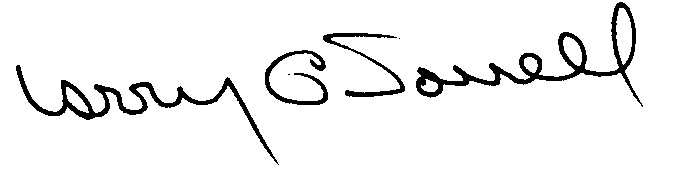 Larry G Sorrell